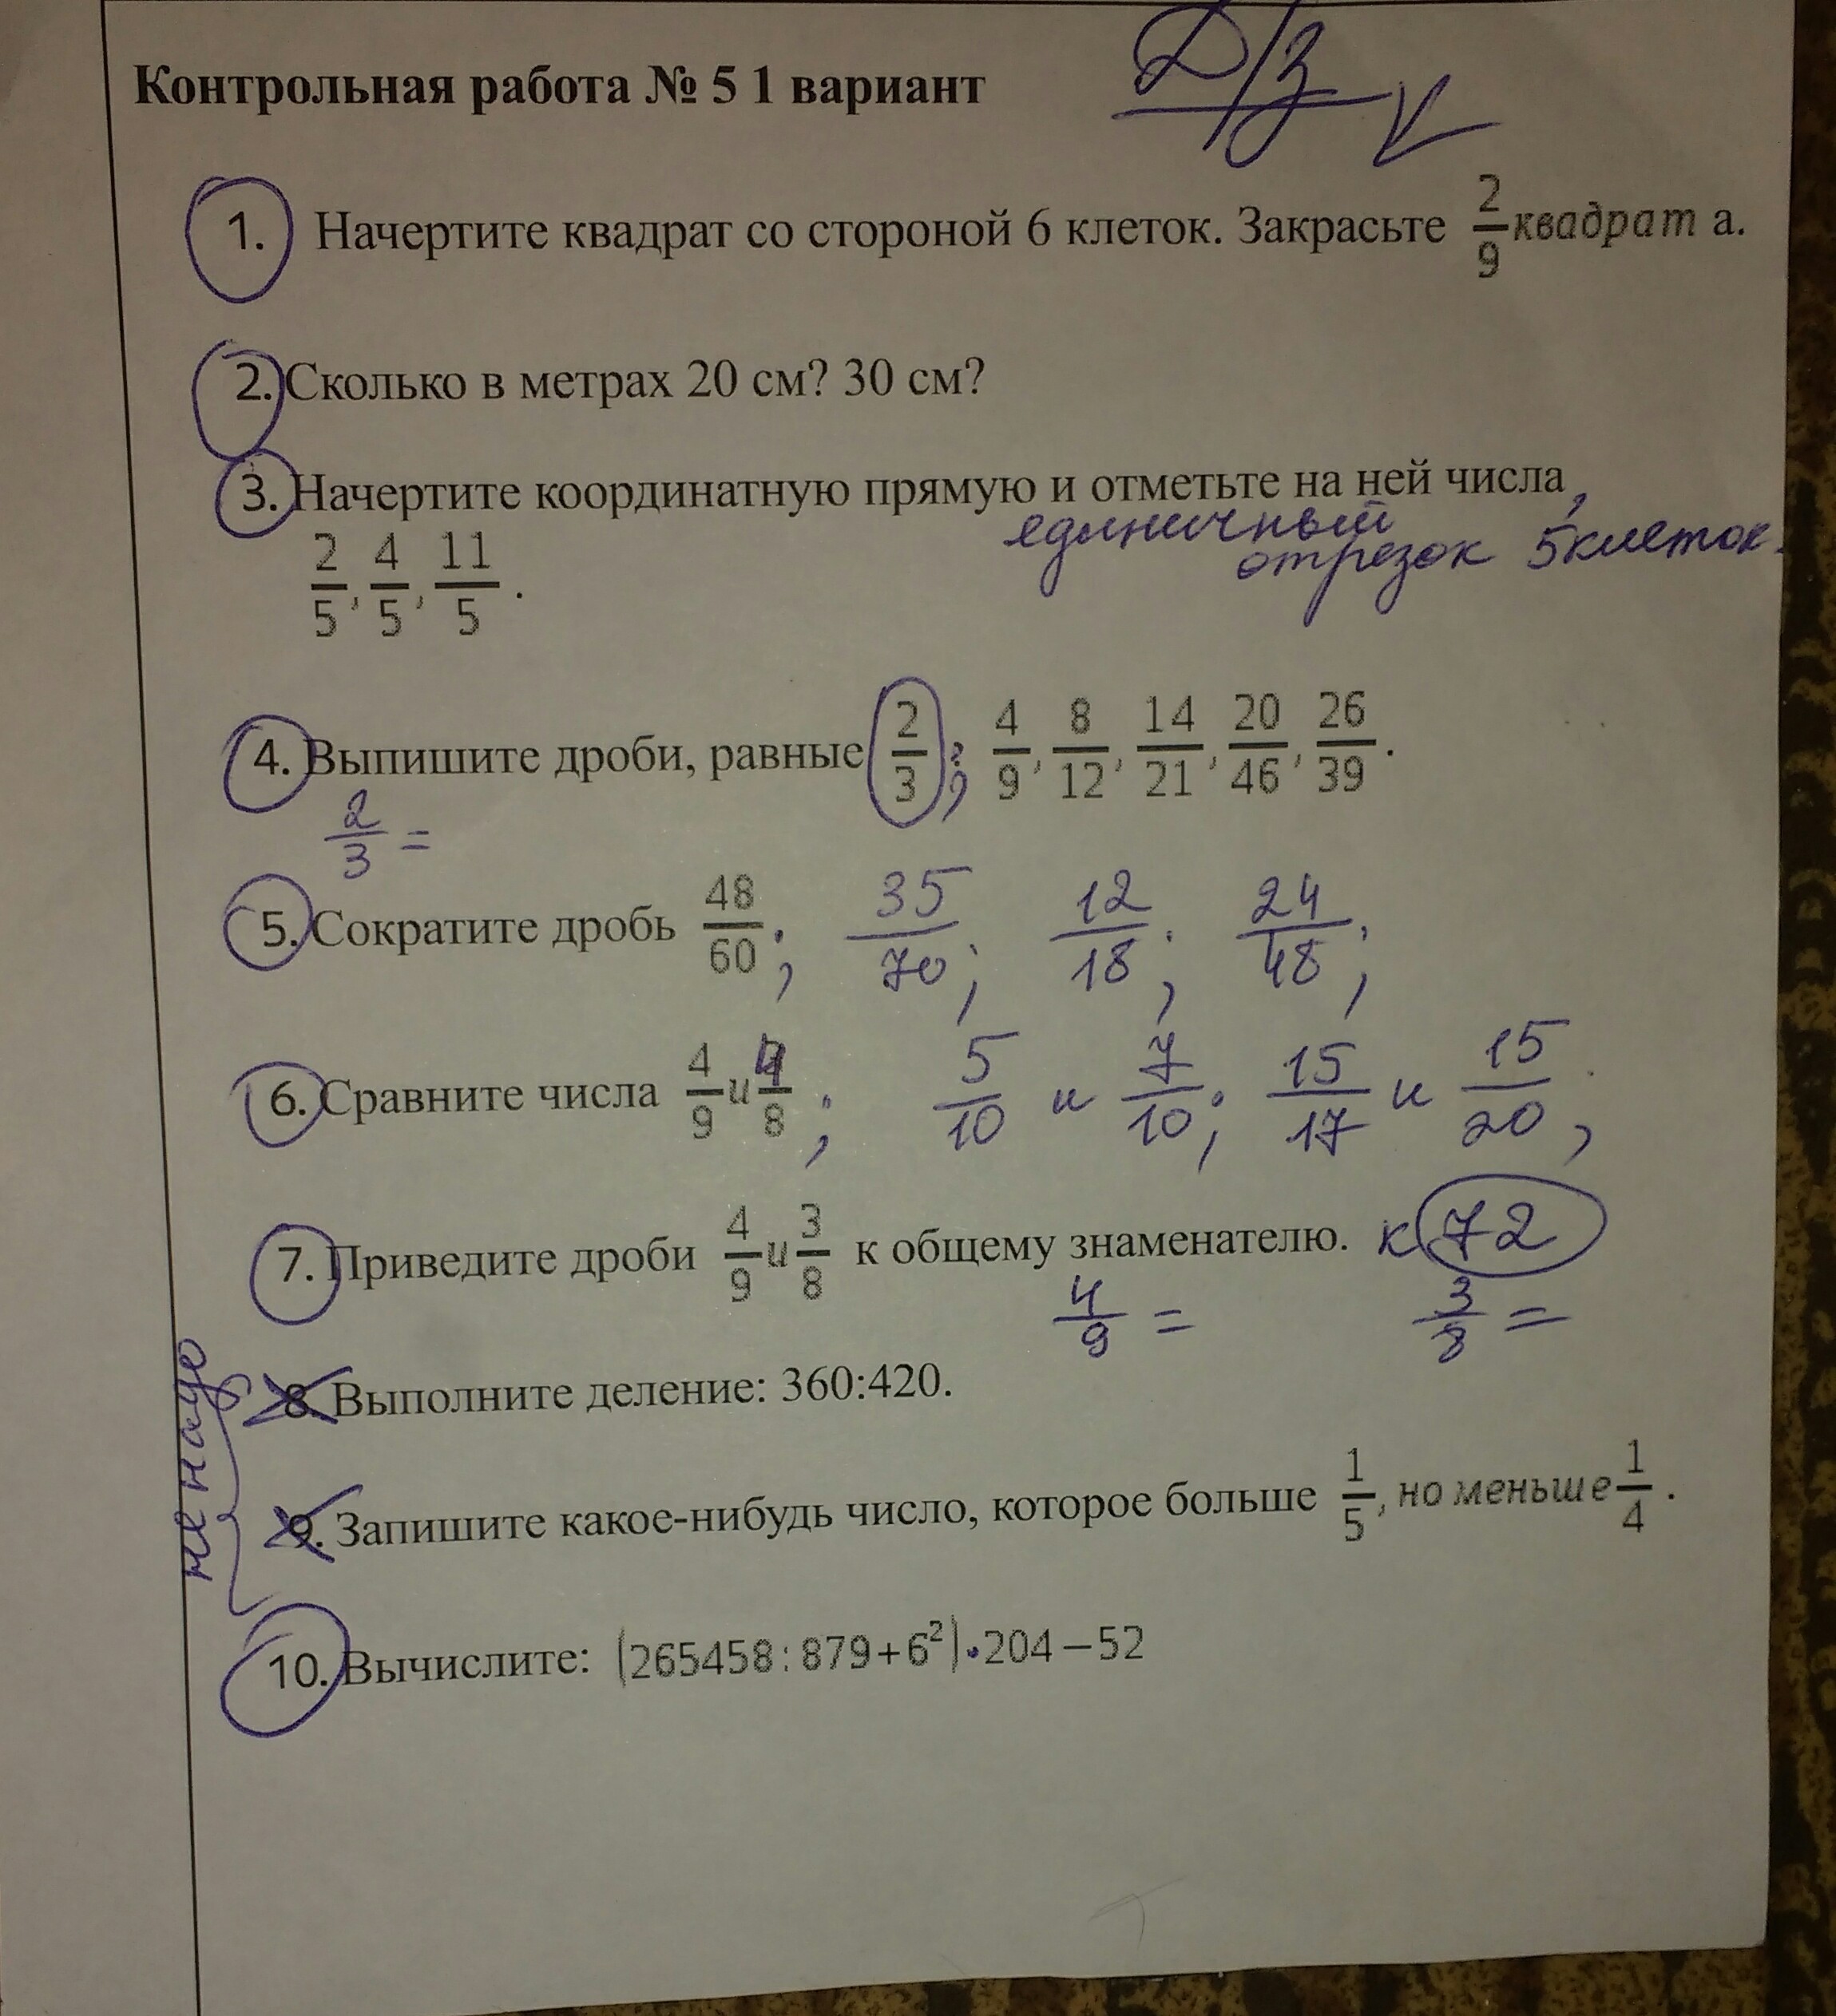 Контрольная работа № 5 1 вариант
Д/З
1. Начертите квадрат со стороной 6 клеток. Закрасьте 2/9 квадрат а.
2. Сколько в метрах 20 см? 30 см?
3. Начертите координатную прямую и отметьте на ней числа,
единичный отрезок 5 клеток.
2/5, 4/5, 11/5.
4. Выпишите дроби, равные 2/3; 4/9, 8/12, 14/21, 20/46, 26/39.
2/3 =
5. Сократите дробь 48/60; 35/70; 12/18; 24/48;
6. Сравните числа 4/9 и 4/8; 5/10 и 7/10; 15/17 и 15/20;
7. Приведите дроби 4/9 и 3/8 к общему знаменателю. к 72
4/9 = 3/8 =
не надо
8. Выполните деление: 360:420.
9. Запишите какое-нибудь число, которое больше 1/5, но меньше 1/4.
10. Вычислите: (265458:879+6²)·204−52